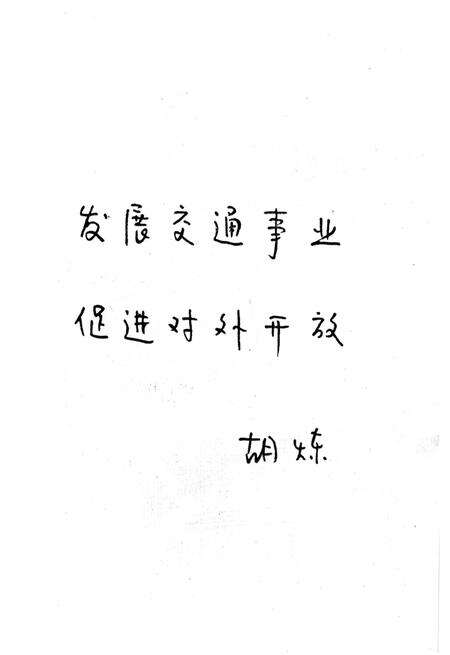 发展交通事业
促进对外开放
胡炼